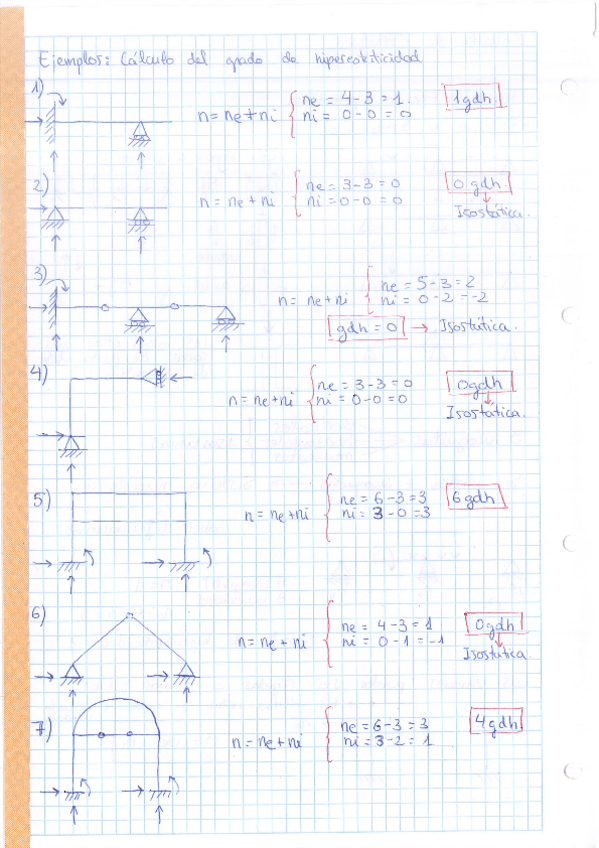 Ejemplos: Cálculo del grado de hiperestaticidad
1)
n = ne + ni
ne = 4 - 3 = 1.
ni = 0 - 0 = 0
1 gdh.
2)
n = ne + ni
ne = 3 - 3 = 0
ni = 0 - 0 = 0
0 gdh
Isostática.
3)
n = ne + ni
ne = 5 - 3 = 2
ni = 0 - 2 = -2
gdh = 0 → Isostática.
4)
n = ne + ni
ne = 3 - 3 = 0
ni = 0 - 0 = 0
0 gdh
Isostática.
5)
n = ne + ni
ne = 6 - 3 = 3
ni = 3 - 0 = 3
6 gdh
6)
n = ne + ni
ne = 4 - 3 = 1
ni = 0 - 1 = -1
0 gdh
Isostática
7)
n = ne + ni
ne = 6 - 3 = 3
ni = 3 - 2 = 1
4 gdh